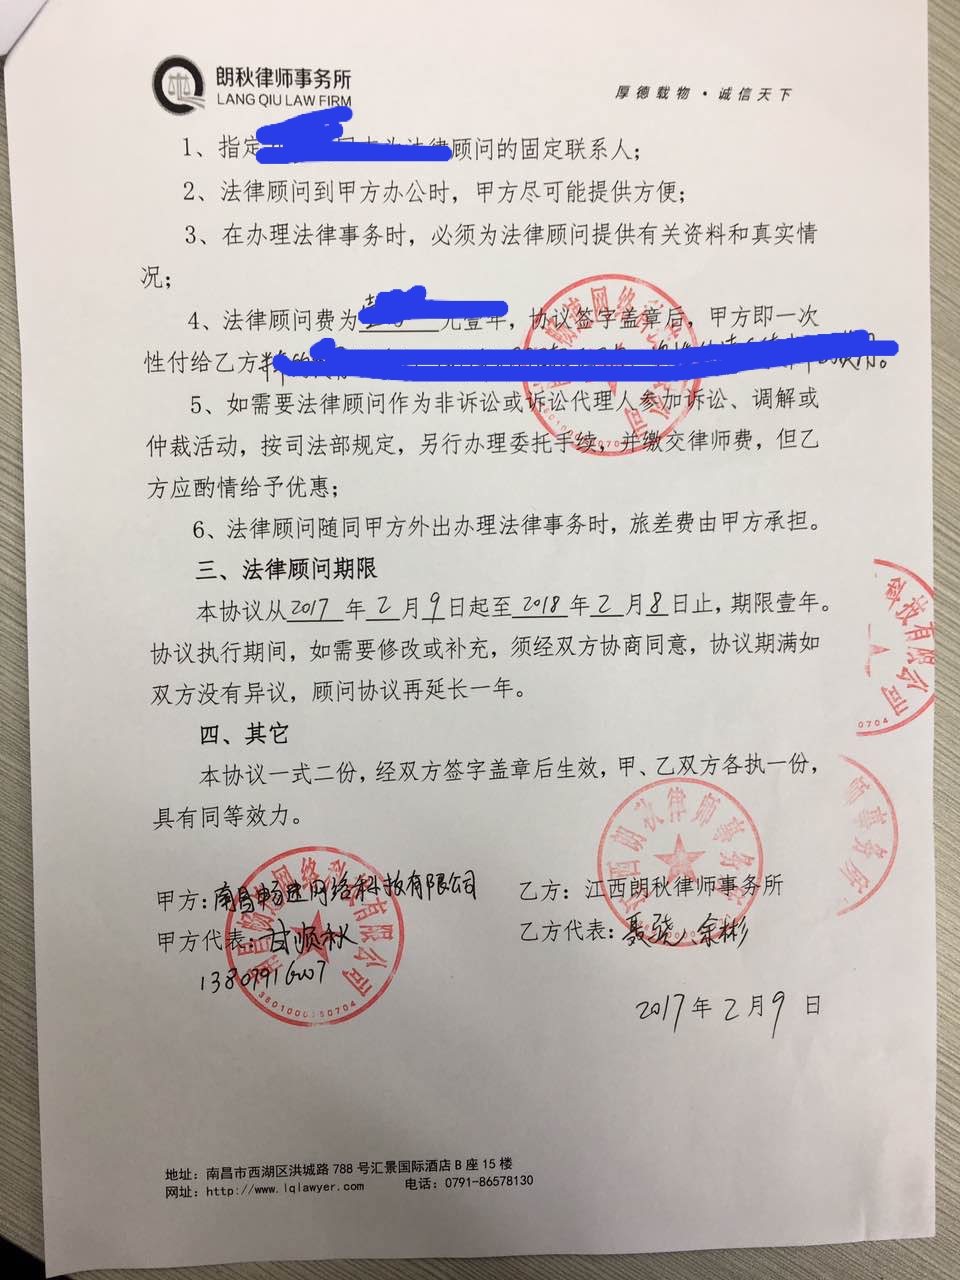 朗秋律师事务所
LANG QIU LAW FIRM
厚德载物·诚信天下
1、指定 法律顾问的固定联系人；
2、法律顾问到甲方办公时，甲方尽可能提供方便；
3、在办理法律事务时，必须为法律顾问提供有关资料和真实情
况；
4、法律顾问费为 元壹年，协议签字盖章后，甲方即一次
性付给乙方
5、如需要法律顾问作为非诉讼或诉讼代理人参加诉讼、调解或
仲裁活动，按司法部规定，另行办理委托手续，并缴交律师费，但乙
方应酌情给予优惠；
6、法律顾问随同甲方外出办理法律事务时，旅差费由甲方承担。
三、法律顾问期限
本协议从2017年2月9日起至2018年2月8日止，期限壹年。
协议执行期间，如需要修改或补充，须经双方协商同意，协议期满如
双方没有异议，顾问协议再延长一年。
科技有限公司
0704
四、其它
本协议一式二份，经双方签字盖章后生效，甲、乙双方各执一份，
具有同等效力。
江西朗秋律师事务所
师事务所
甲方：南昌畅速网络科技有限公司
乙方：江西朗秋律师事务所
甲方代表：甘顺秋
乙方代表：聂骁、余彬
南昌畅速网络科技有限公司
2017年2月9日
地址：南昌市西湖区洪城路788号汇景国际酒店B座15楼
网址：http://www.lqlawyer.com 电话：0791-86578130